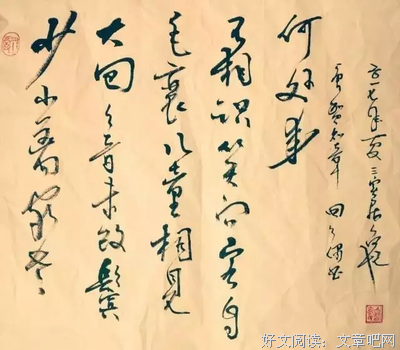 少小離家老
大回乡音未改鬢
毛衰儿童相見
不相識笑问客自
何处来
贺知章 回乡偶书
好文阅读：文章吧网